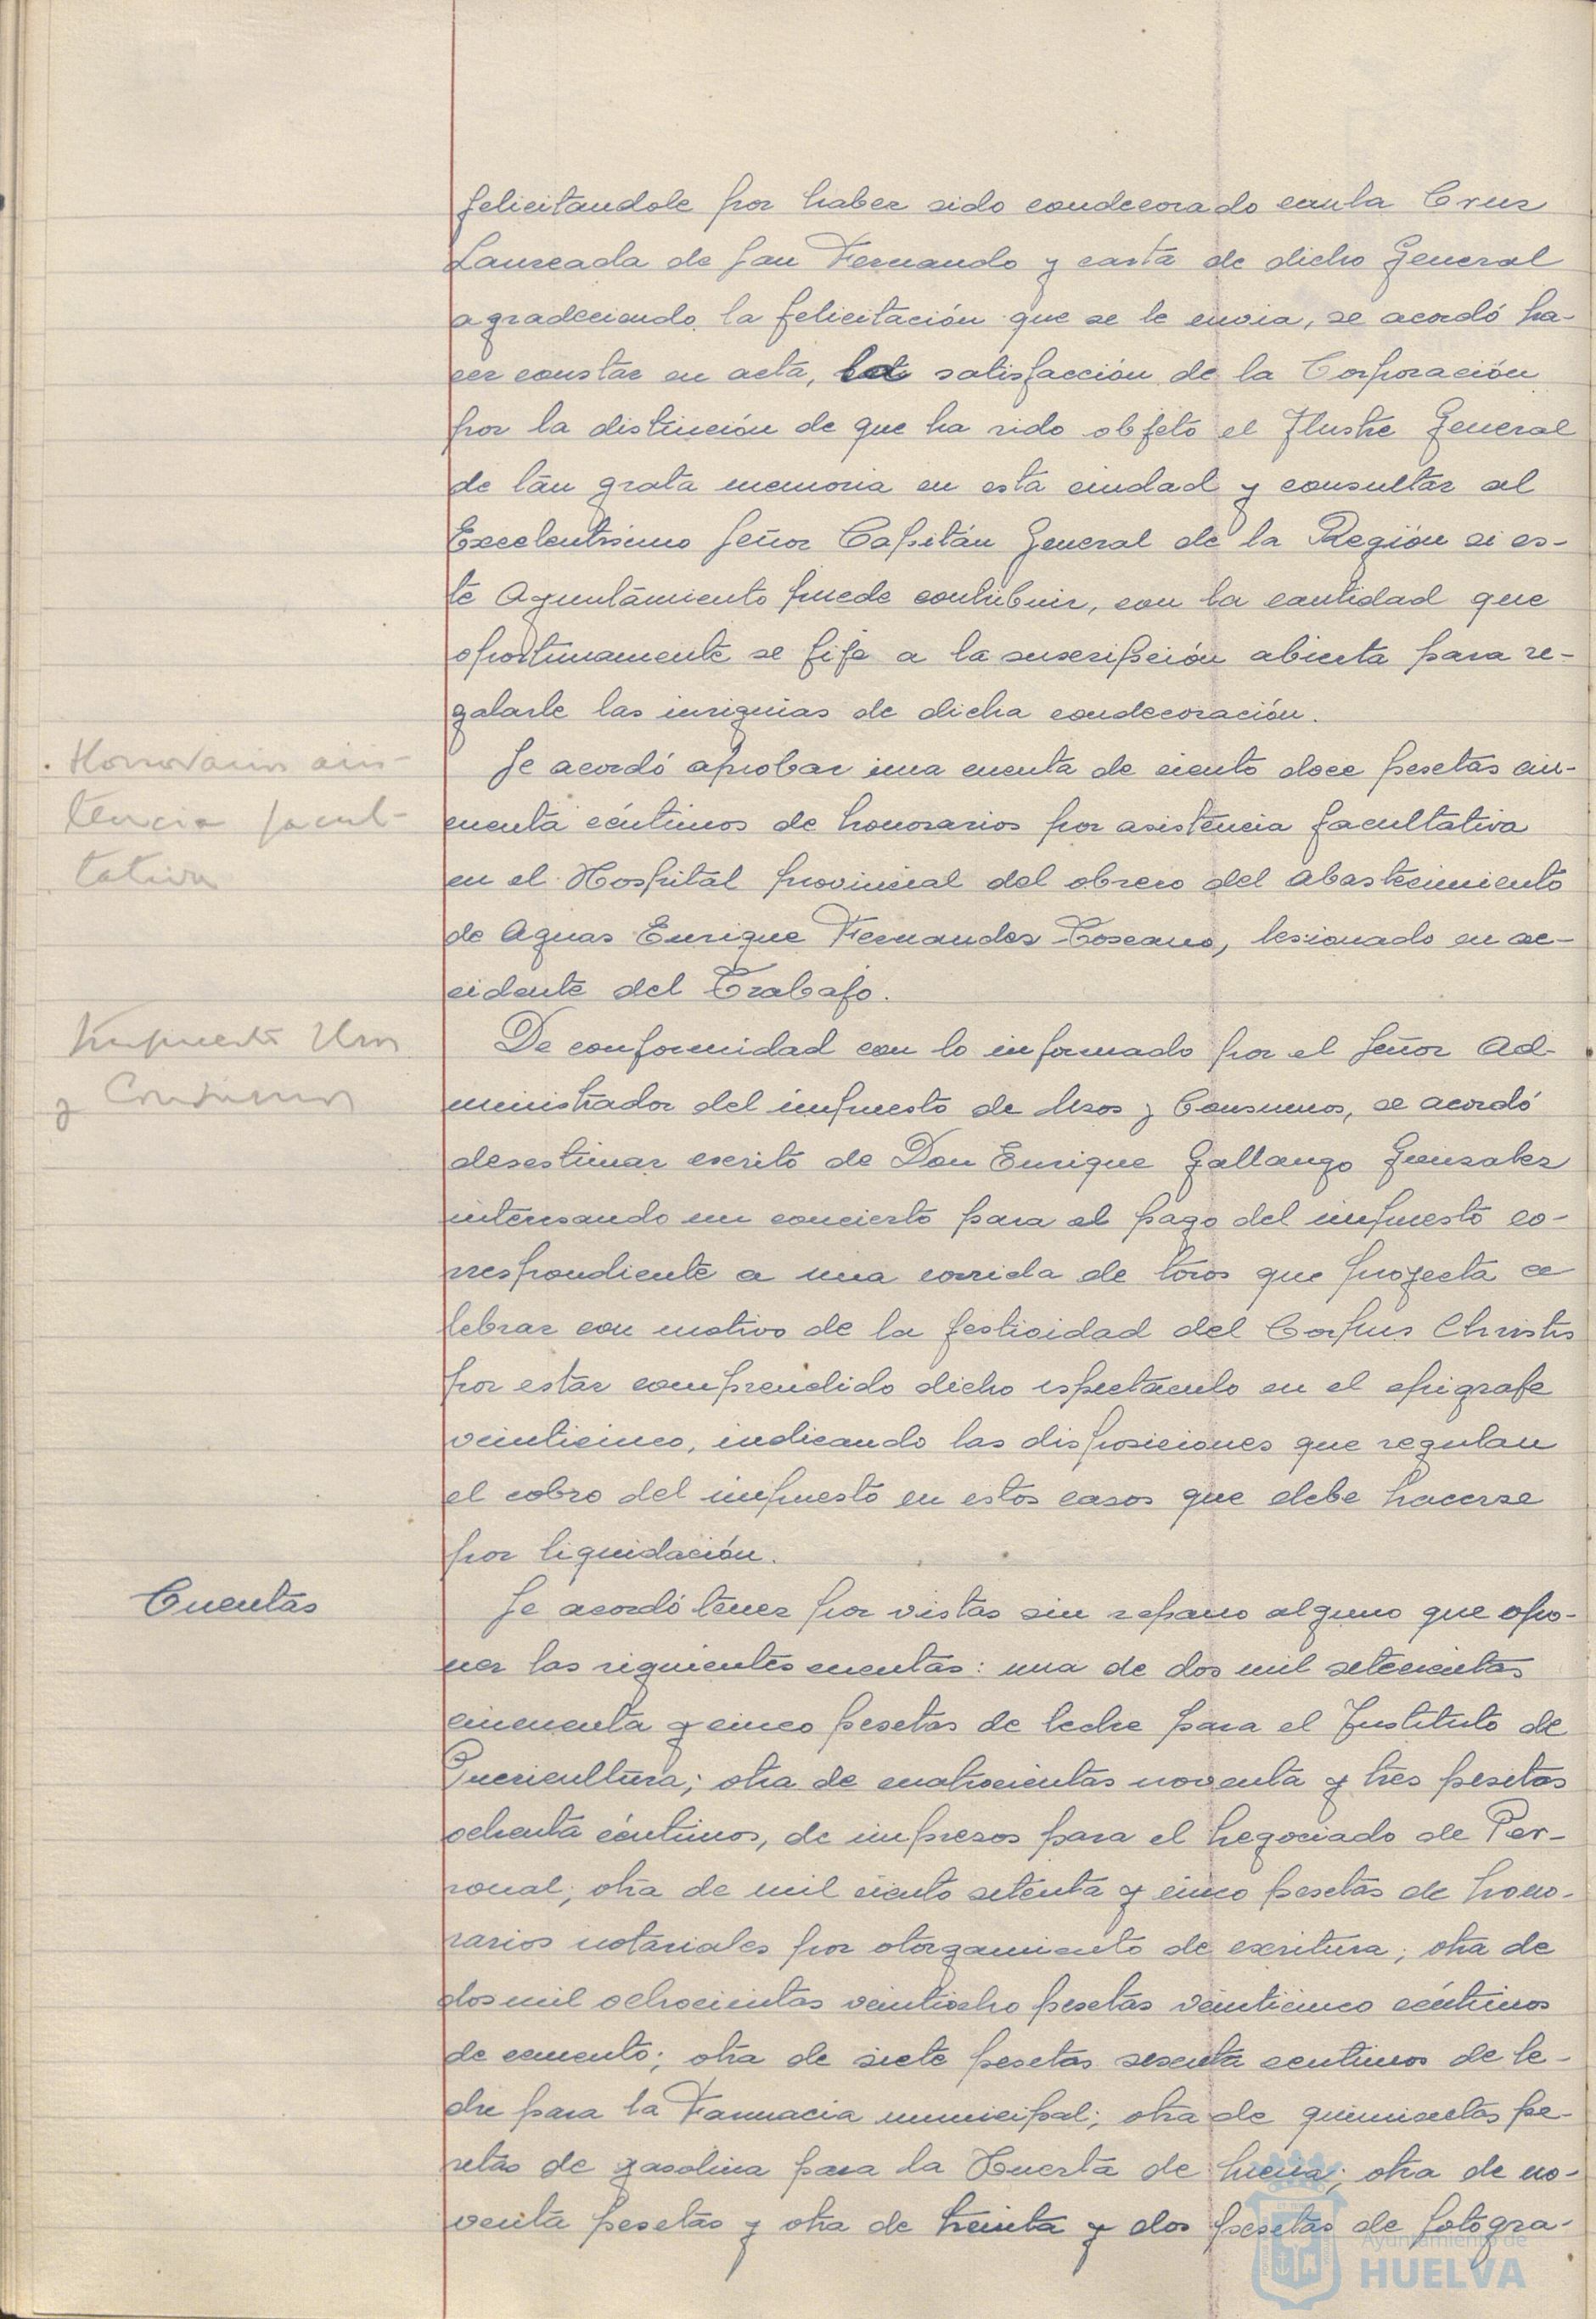 felicitandole por haber sido condecorado con la Cruz
Laureada de San Fernando y carta de dicho General
agradeciendo la felicitación que se le envia, se acordó ha-
cer constar en acta, la satisfacción de la Corporación
por la distinción de que ha sido objeto el Ilustre General
de tán grata memoria en esta ciudad y consultar al
Excelentisimo Señor Capitán General de la Región si es-
te Ayuntamiento puede contribuir, con la cantidad que
oportunamente se fije a la suscripción abierta para re-
galarle las insignias de dicha condecoración.
. Honorarios asis-
tencia facul-
tativa
Se acordó aprobar una cuenta de ciento doce pesetas cin-
cuenta céntimos de honorarios por asistencia facultativa
en el Hospital provincial del obrero del abastecimiento
de Aguas Enrique Fernandez Toscano, lesionado en ac-
cidente del Trabajo.
Impuesto Usos
y Consumos
De conformidad con lo informado por el Señor Ad-
ministrador del impuesto de Usos y Consumos, se acordó
desestimar escrito de Don Enrique Gallango Gonzalez
interesando un concierto para el pago del impuesto co-
rrespondiente a una corrida de toros que proyecta ce
lebrar con motivo de la festividad del Corpus Christis
por estar comprendido dicho espectáculo en el epigrafe
veinticinco, indicando las disposiciones que regulan
el cobro del impuesto en estos casos que debe hacerse
por liquidación.
Cuentas
Se acordó tener por vistas sin reparo alguno que opo-
ner las siguientes cuentas: una de dos mil setecientas
cincuenta y cinco pesetas de leche para el Instituto de
Puericultura; otra de cuatrocientas noventa y tres pesetas
ochenta céntimos, de impresos para el Negociado de Per-
sonal; otra de mil ciento setenta y cinco pesetas de hono-
rarios notariales por otorgamiento de escritura; otra de
dos mil ochocientas veintiocho pesetas veinticinco céntimos
de cemento; otra de siete pesetas sesenta centimos de le-
che para la Farmacia municipal; otra de quinientas pe-
setas de gasolina para la Huerta de Mena; otra de no-
venta pesetas y otra de treinta y dos pesetas de fotogra-
Ayuntamiento de
HUELVA